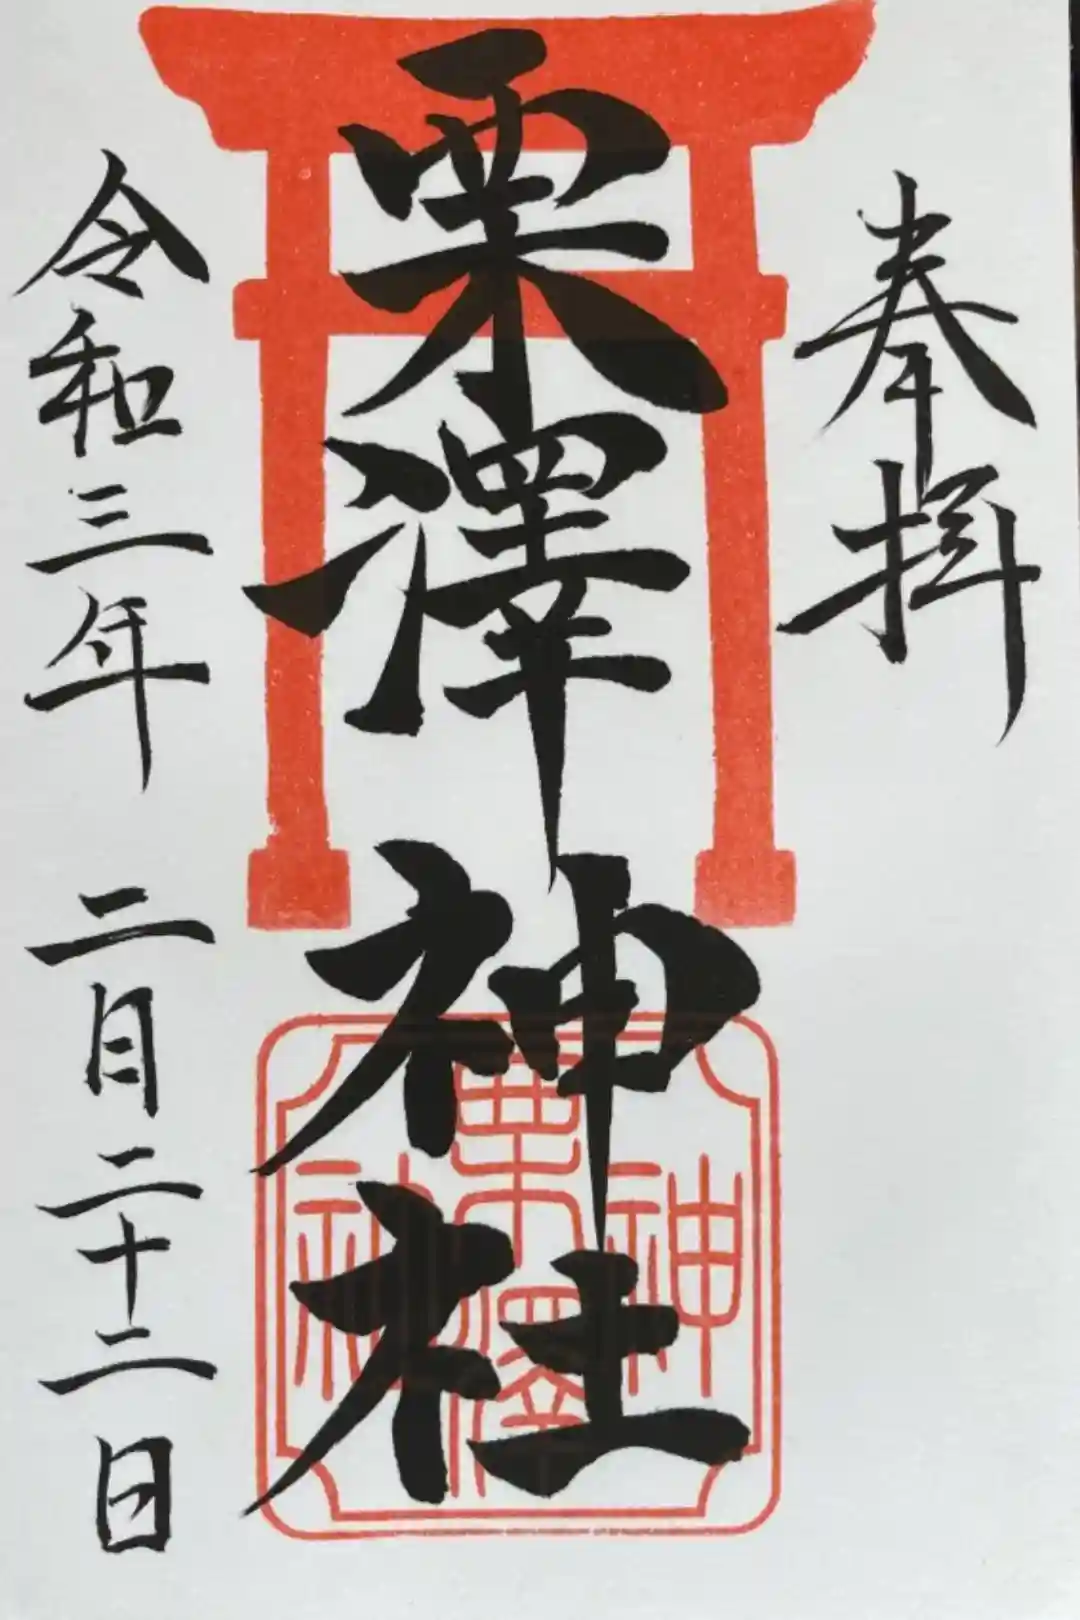 奉拝
栗澤神社
神栗澤社
令和三年 二月二十二日